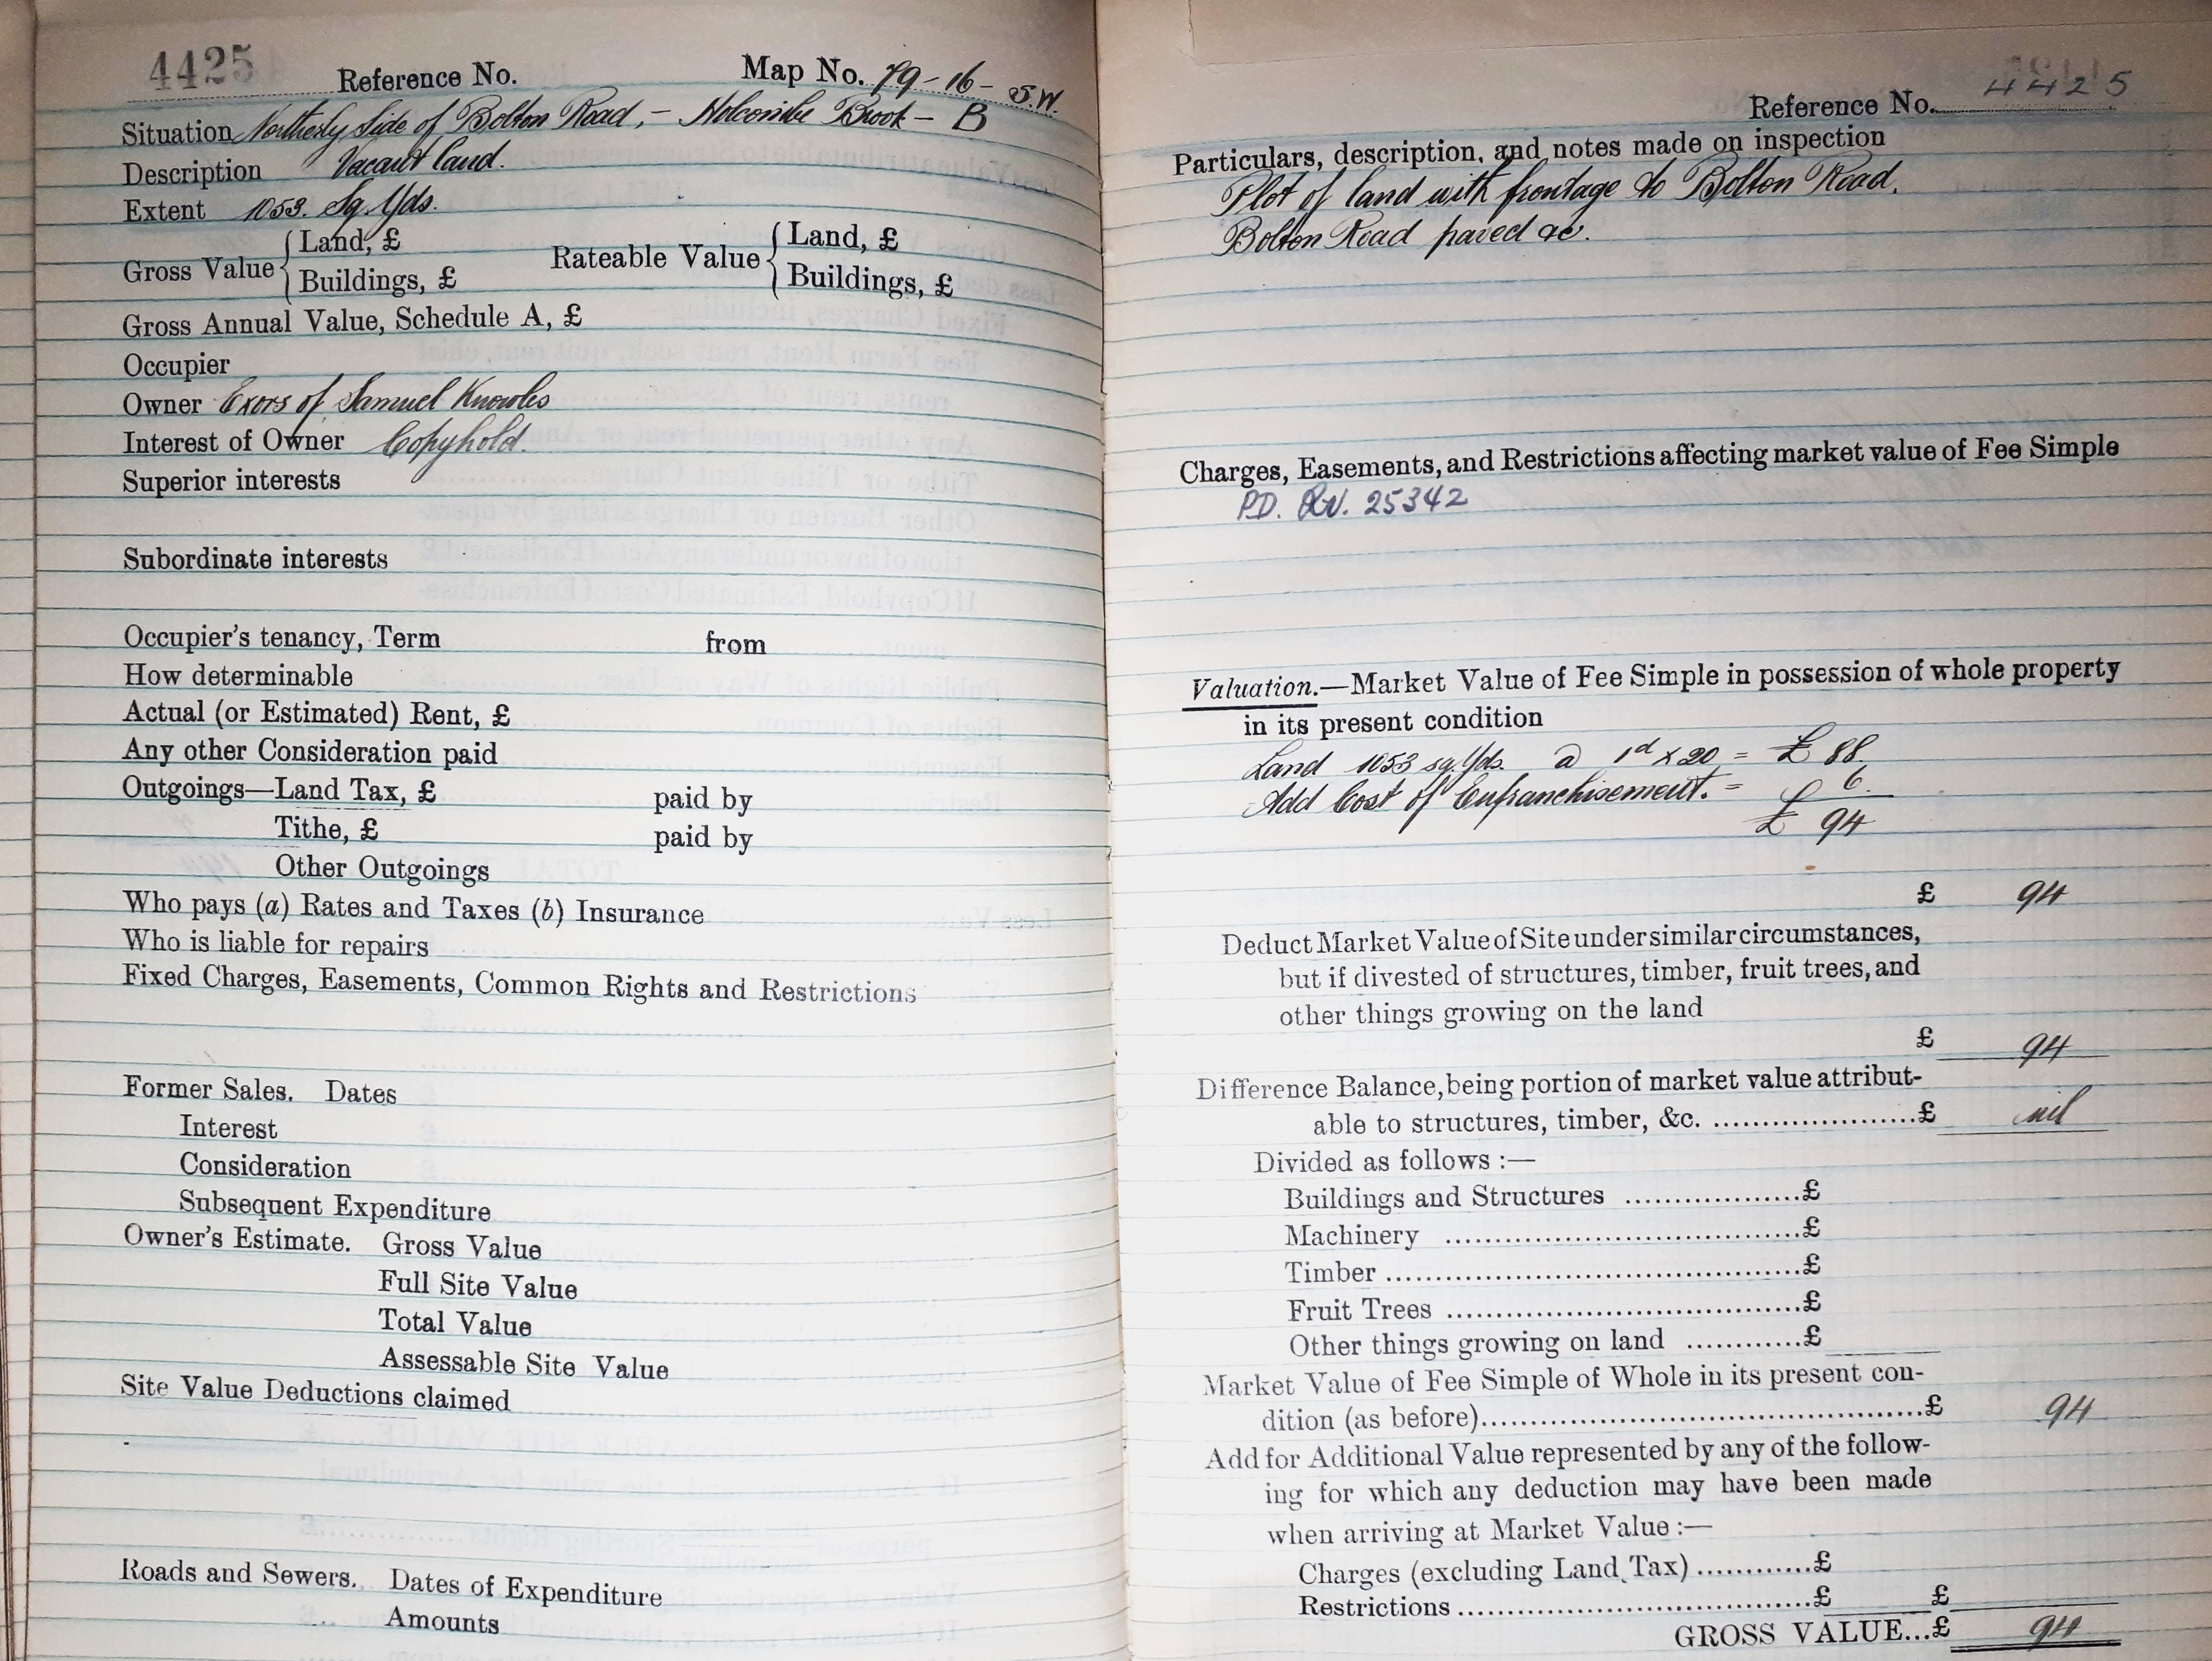 4425 Reference No. Map No. 79-16-S.W.
Situation Northerly Side of Bolton Road, - Holcombe Brook - B
Description Vacant land.
Extent 1053. Sq. Yds.
Gross Value { Land, £ Rateable Value { Land, £
Buildings, £ Buildings, £
Gross Annual Value, Schedule A, £
Occupier
Owner Exors of Samuel Knowles
Interest of Owner Copyhold.
Superior interests
Subordinate interests
Occupier's tenancy, Term from
How determinable
Actual (or Estimated) Rent, £
Any other Consideration paid
Outgoings—Land Tax, £ paid by
Tithe, £ paid by
Other Outgoings
Who pays (a) Rates and Taxes (b) Insurance
Who is liable for repairs
Fixed Charges, Easements, Common Rights and Restrictions
Former Sales. Dates
Interest
Consideration
Subsequent Expenditure
Owner's Estimate. Gross Value
Full Site Value
Total Value
Assessable Site Value
Site Value Deductions claimed
Roads and Sewers. Dates of Expenditure
Amounts
Reference No. 4425
Particulars, description, and notes made on inspection
Plot of land with frontage to Bolton Road.
Bolton Road paved &c.
Charges, Easements, and Restrictions affecting market value of Fee Simple
P.D. 25342
Valuation.—Market Value of Fee Simple in possession of whole property
in its present condition
Land 1053 sq. Yds. @ 1d x 20 = £ 88.
Add Cost of Enfranchisement. = 6.
£ 94
£ 94
Deduct Market Value of Site under similar circumstances,
but if divested of structures, timber, fruit trees, and
other things growing on the land
£ 94
Difference Balance, being portion of market value attribut-
able to structures, timber, &c. ....................£ nil
Divided as follows :—
Buildings and Structures ..................£
Machinery .....................................£
Timber ...........................................£
Fruit Trees .....................................£
Other things growing on land ...........£
Market Value of Fee Simple of Whole in its present con-
dition (as before)..............................................£ 94
Add for Additional Value represented by any of the follow-
ing for which any deduction may have been made
when arriving at Market Value :—
Charges (excluding Land Tax) ............£
Restrictions .....................................£ £
GROSS VALUE...£ 94